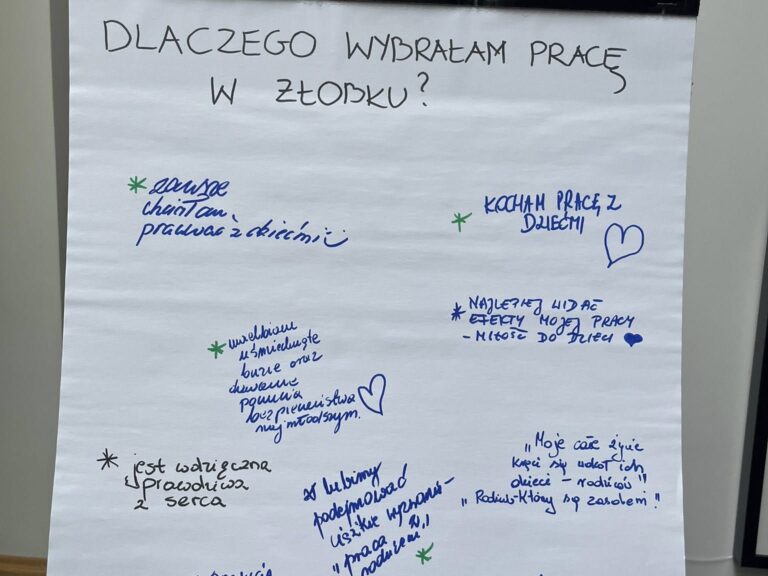 DLACZEGO WYBRAŁAM PRACĘ
W ŻŁOBKU?
* zawsze
chciałam
pracować z dziećmi
* KOCHAM PRACĘ Z
DZIEĆMI
* NAJLEPIEJ WIDAĆ
EFEKTY MOJEJ PRACY
- MIŁOŚĆ DO DZIECI
* uwielbiam
uśmiechnięte
buzie oraz
dawanie
poczucia
bezpieczeństwa
najmłodszym.
* jest wdzięczna
prawdziwa
z serca
lubimy
podejmować
wyzwania -
"praca z
rodzicem"
"Moje całe życie
kręci się wokół ich
dzieci - rodziców"
"Rodzic - Który są zasobem"!